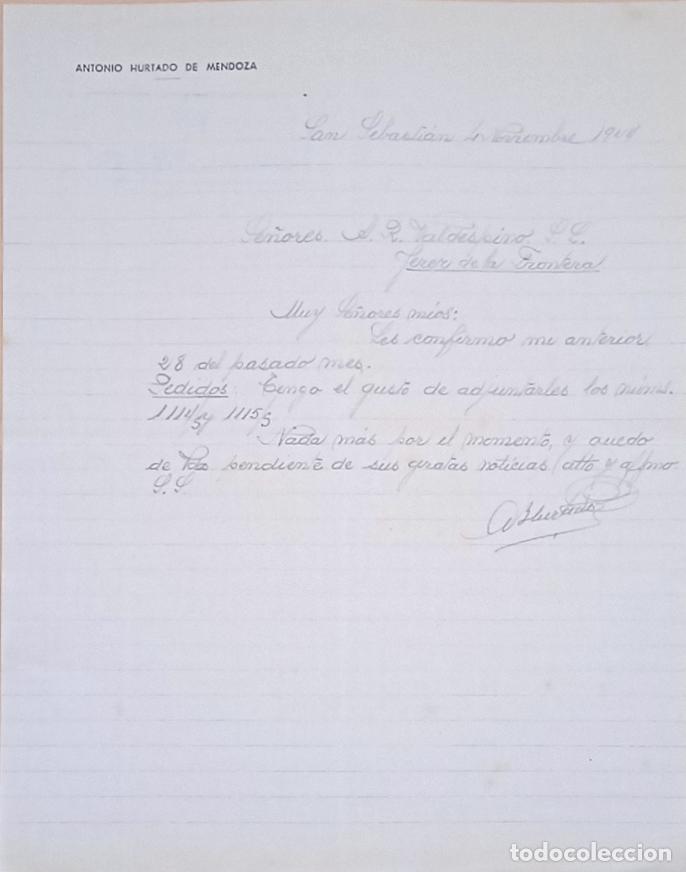 ANTONIO HURTADO DE MENDOZA
San Sebastián 4 Noviembre
Señores A. R. Valdespino. S. C.
Jerez de la Frontera
Muy Señores mios:
Les confirmo mi anterior
28 del pasado mes.
Pedidos: Tengo el gusto de adjuntarles los núms.
1114/5 y 1115/5
Nada más por el momento, y quedo
de Vds pendiente de sus gratas noticias atto y affmo
S. S.
AHurtado
todocoleccion
todocoleccion.net